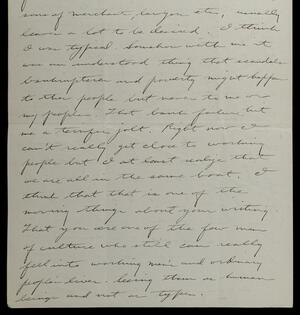 sons of merchant, lawyer etc, usually
leave a lot to be desired. I think
I was typical. Somehow with me it
was an understood thing that scandals
bankruptcies and poverty might happen
to other people but never to me or
my people. That bank failure but
me a terrific jolt. Right now I
can't really get close to working
people but I at least realize that
we are all in the same boat. I
think that that is one of the
moving things about your writing.
That you are one of the few men
of culture who still can really
fell into working men's and ordinary
people's lives. Seeing them as human
beings and not as types.